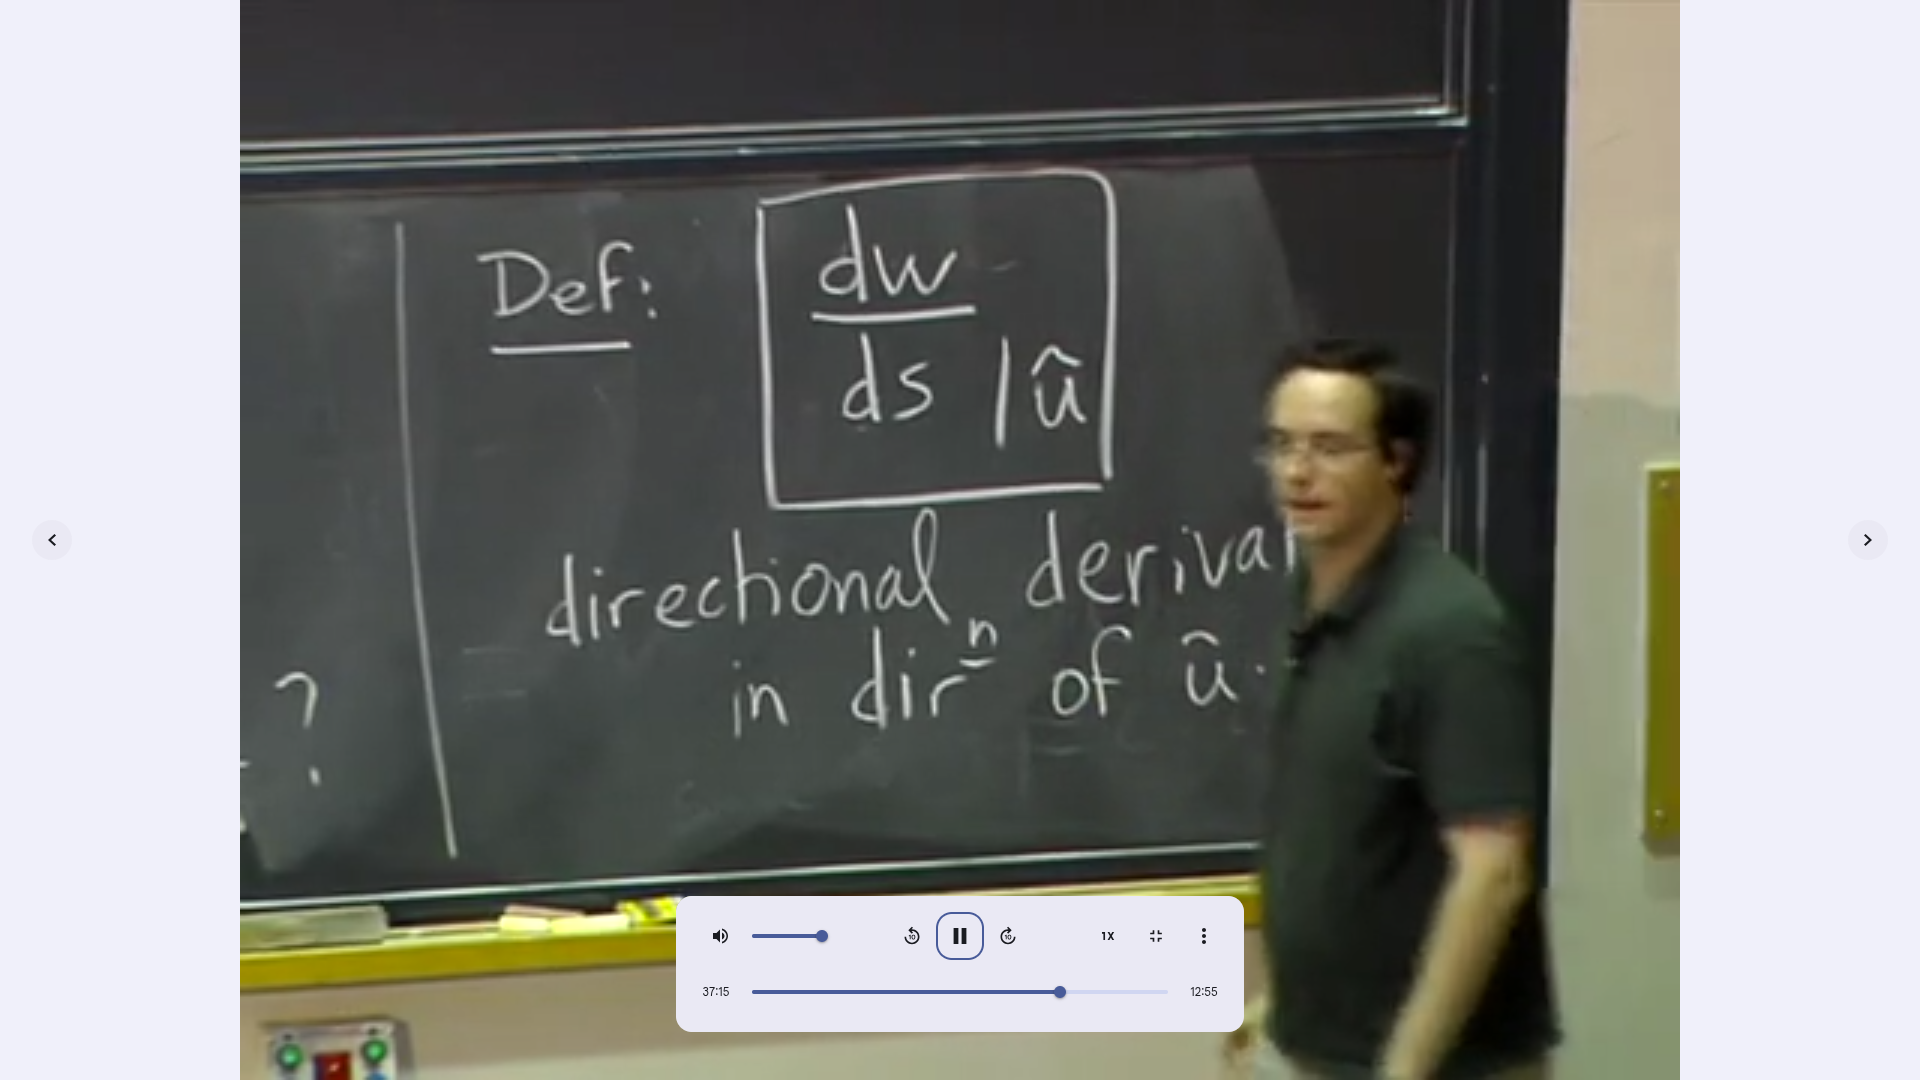 Def:
dw
ds |û
directional
in dirn of û.
?
1X
37:15
12:55